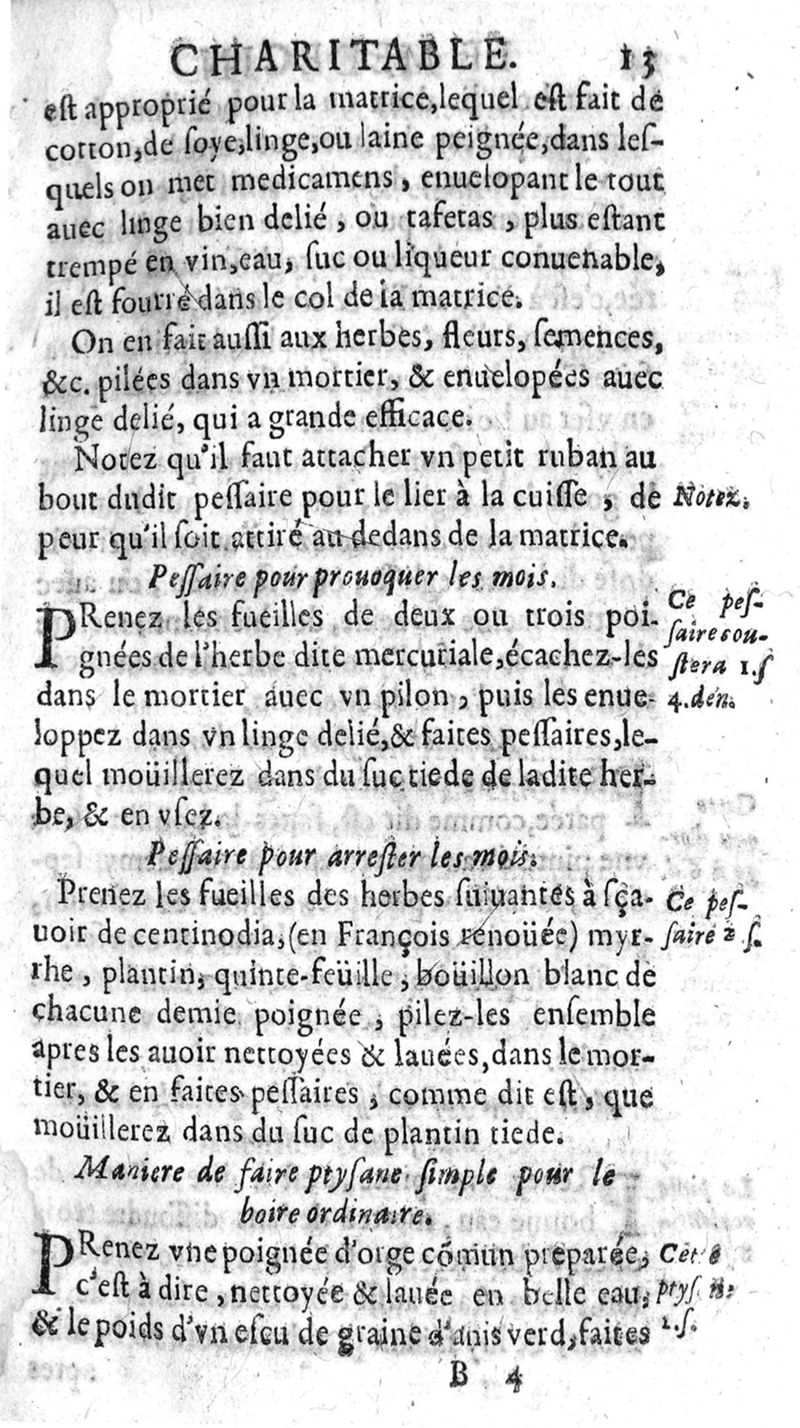 CHARITABLE. 13
est approprié pour la matrice, lequel est fait de
cotton, de ſoye, linge, ou laine peignée, dans leſ-
quels on met medicamens, enuelopant le tout
auec linge bien delié, ou tafetas, plus eſtant
trempé en vin, eau, ſuc ou liqueur conuenable,
il eſt fourré dans le col de la matrice.
On en fait auſſi aux herbes, fleurs, ſemences,
&c. pilées dans vn mortier, & enuelopées auec
linge delié, qui a grande efficace.
Notez qu'il faut attacher vn petit ruban au
bout dudit peſſaire pour le lier à la cuiſſe, de
Notez.
peur qu'il ſoit attiré au dedans de la matrice.
Peſſaire pour prouoquer les mois.
PRenez les fueilles de deux ou trois poi-
gnées de l'herbe dite mercuriale, écachez-les
dans le mortier auec vn pilon, puis les enue-
loppez dans vn linge delié, & faites peſſaires, le-
quel moüillerez dans du ſuc tiede de ladite her-
be, & en vſez.
Ce peſ-
ſaire cou-
ſtera 1.ſ
4.den.
Peſſaire pour arreſter les mois.
Prenez les fueilles des herbes ſuiuantes à ſça-
uoir de centinodia, (en François renoüée) myr-
rhe, plantin, quinte-feüille, boüillon blanc de
chacune demie poignée, pilez-les enſemble
apres les auoir nettoyées & lauées, dans le mor-
tier, & en faites peſſaires, comme dit eſt, que
moüillerez dans du ſuc de plantin tiede.
Ce peſ-
ſaire 2 ſ.
Maniere de faire ptyſane ſimple pour le
boire ordinaire.
PRenez vne poignée d'orge cõmun preparée,
c'eſt à dire, nettoyée & lauée en belle eau,
& le poids d'vn eſcu de graine d'anis verd, faites
1.ſ.
B 4